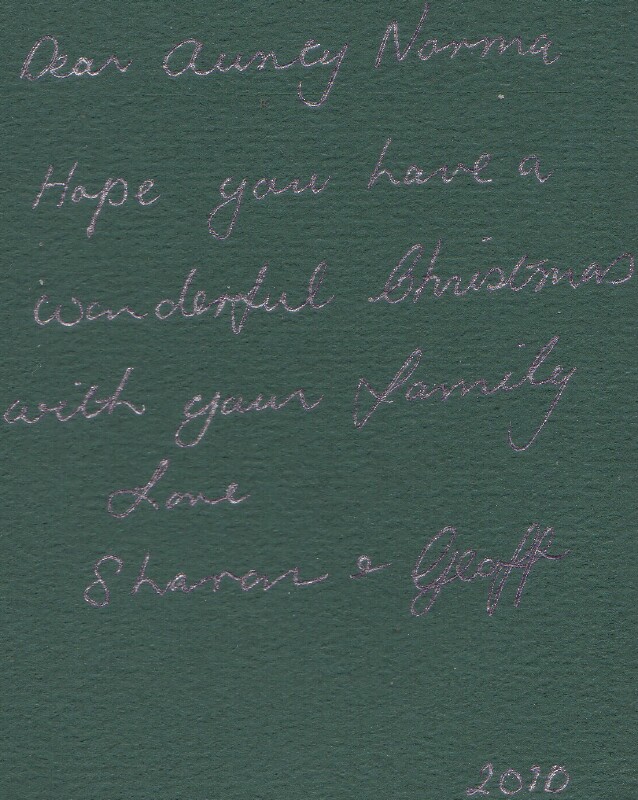 Dear Aunty Norma
Hope you have a
wonderful Christmas
with your family
Love
Sharon & Geoff
2010